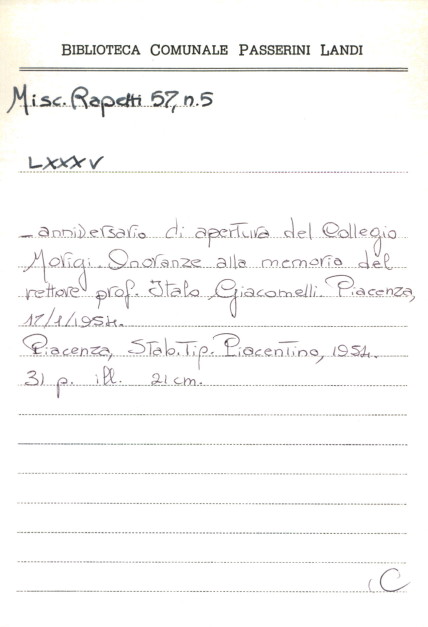 BIBLIOTECA COMUNALE PASSERINI LANDI
Misc. Rapetti 57, n.5
LXXXV
_ anniversario di apertura del Collegio
Morigi. Onoranze alla memoria del
rettore prof. Italo Giacomelli. Piacenza,
17/1/1954.
Piacenza, Stab. Tip. Piacentino, 1954.
31 p. ill. 21 cm.
C